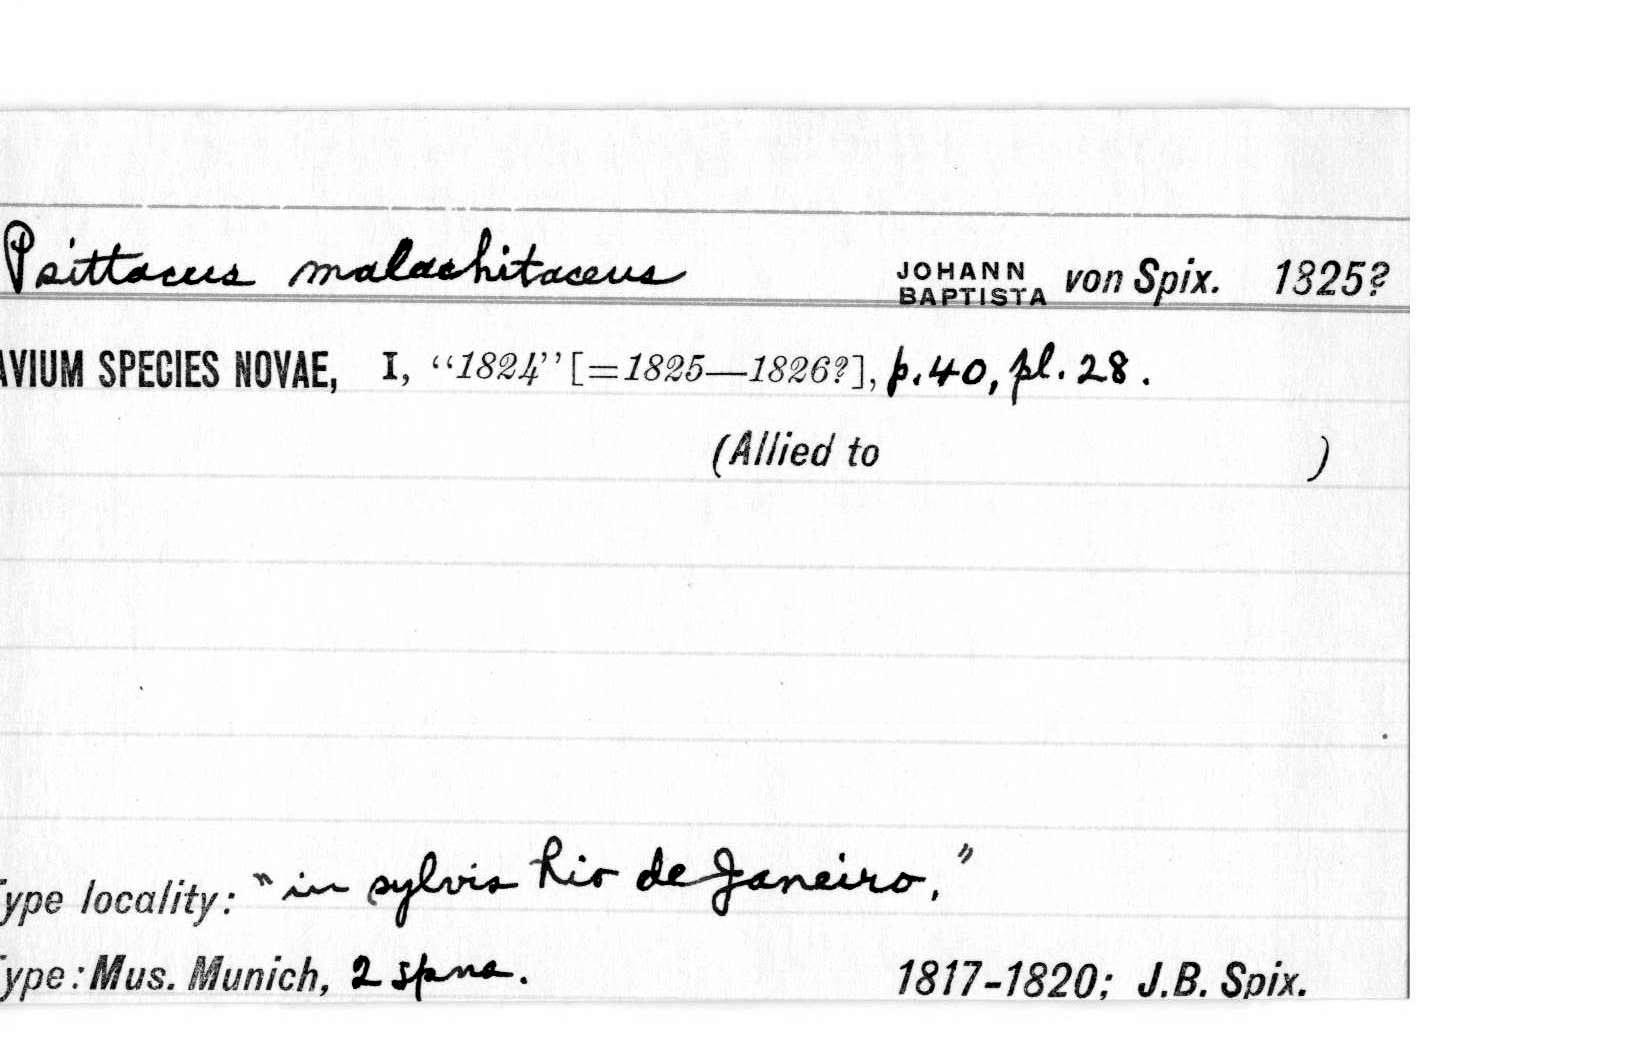 Psittacus malachitaceus JOHANN BAPTISTA von Spix. 1825?
AVIUM SPECIES NOVAE, I, “1824” [=1825—1826?], p.40, pl. 28.
(Allied to )
Type locality: "in sylvis Rio de Janeiro,"
Type: Mus. Munich, 2 spms. 1817-1820; J.B. Spix.